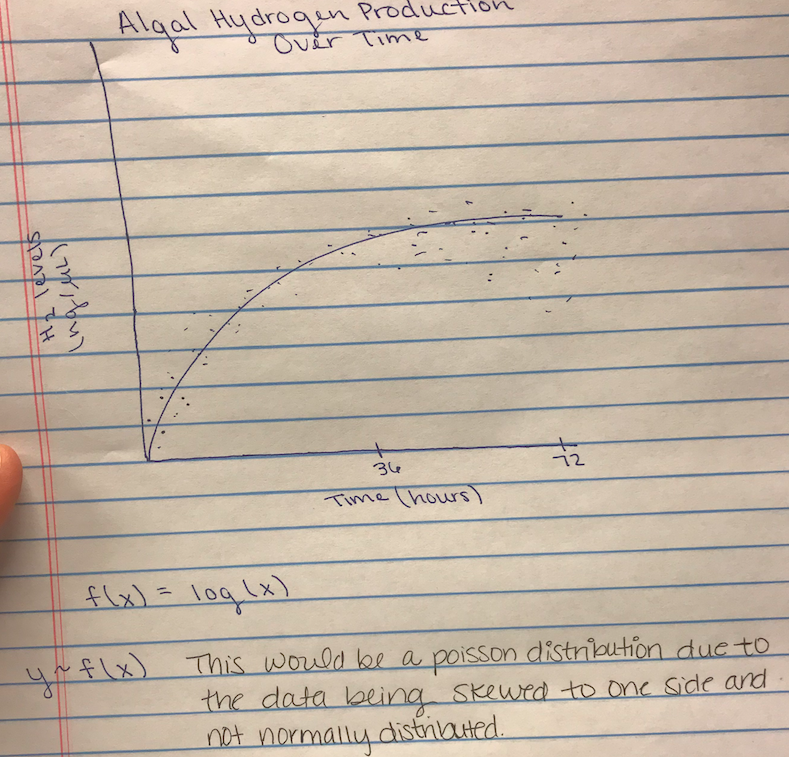 Algal Hydrogen Production
Over Time
H2 levels
(mg/μL)
36
72
Time (hours)
f(x) = log(x)
y ~ f(x) This would be a poisson distribution due to
the data being skewed to one side and
not normally distributed.